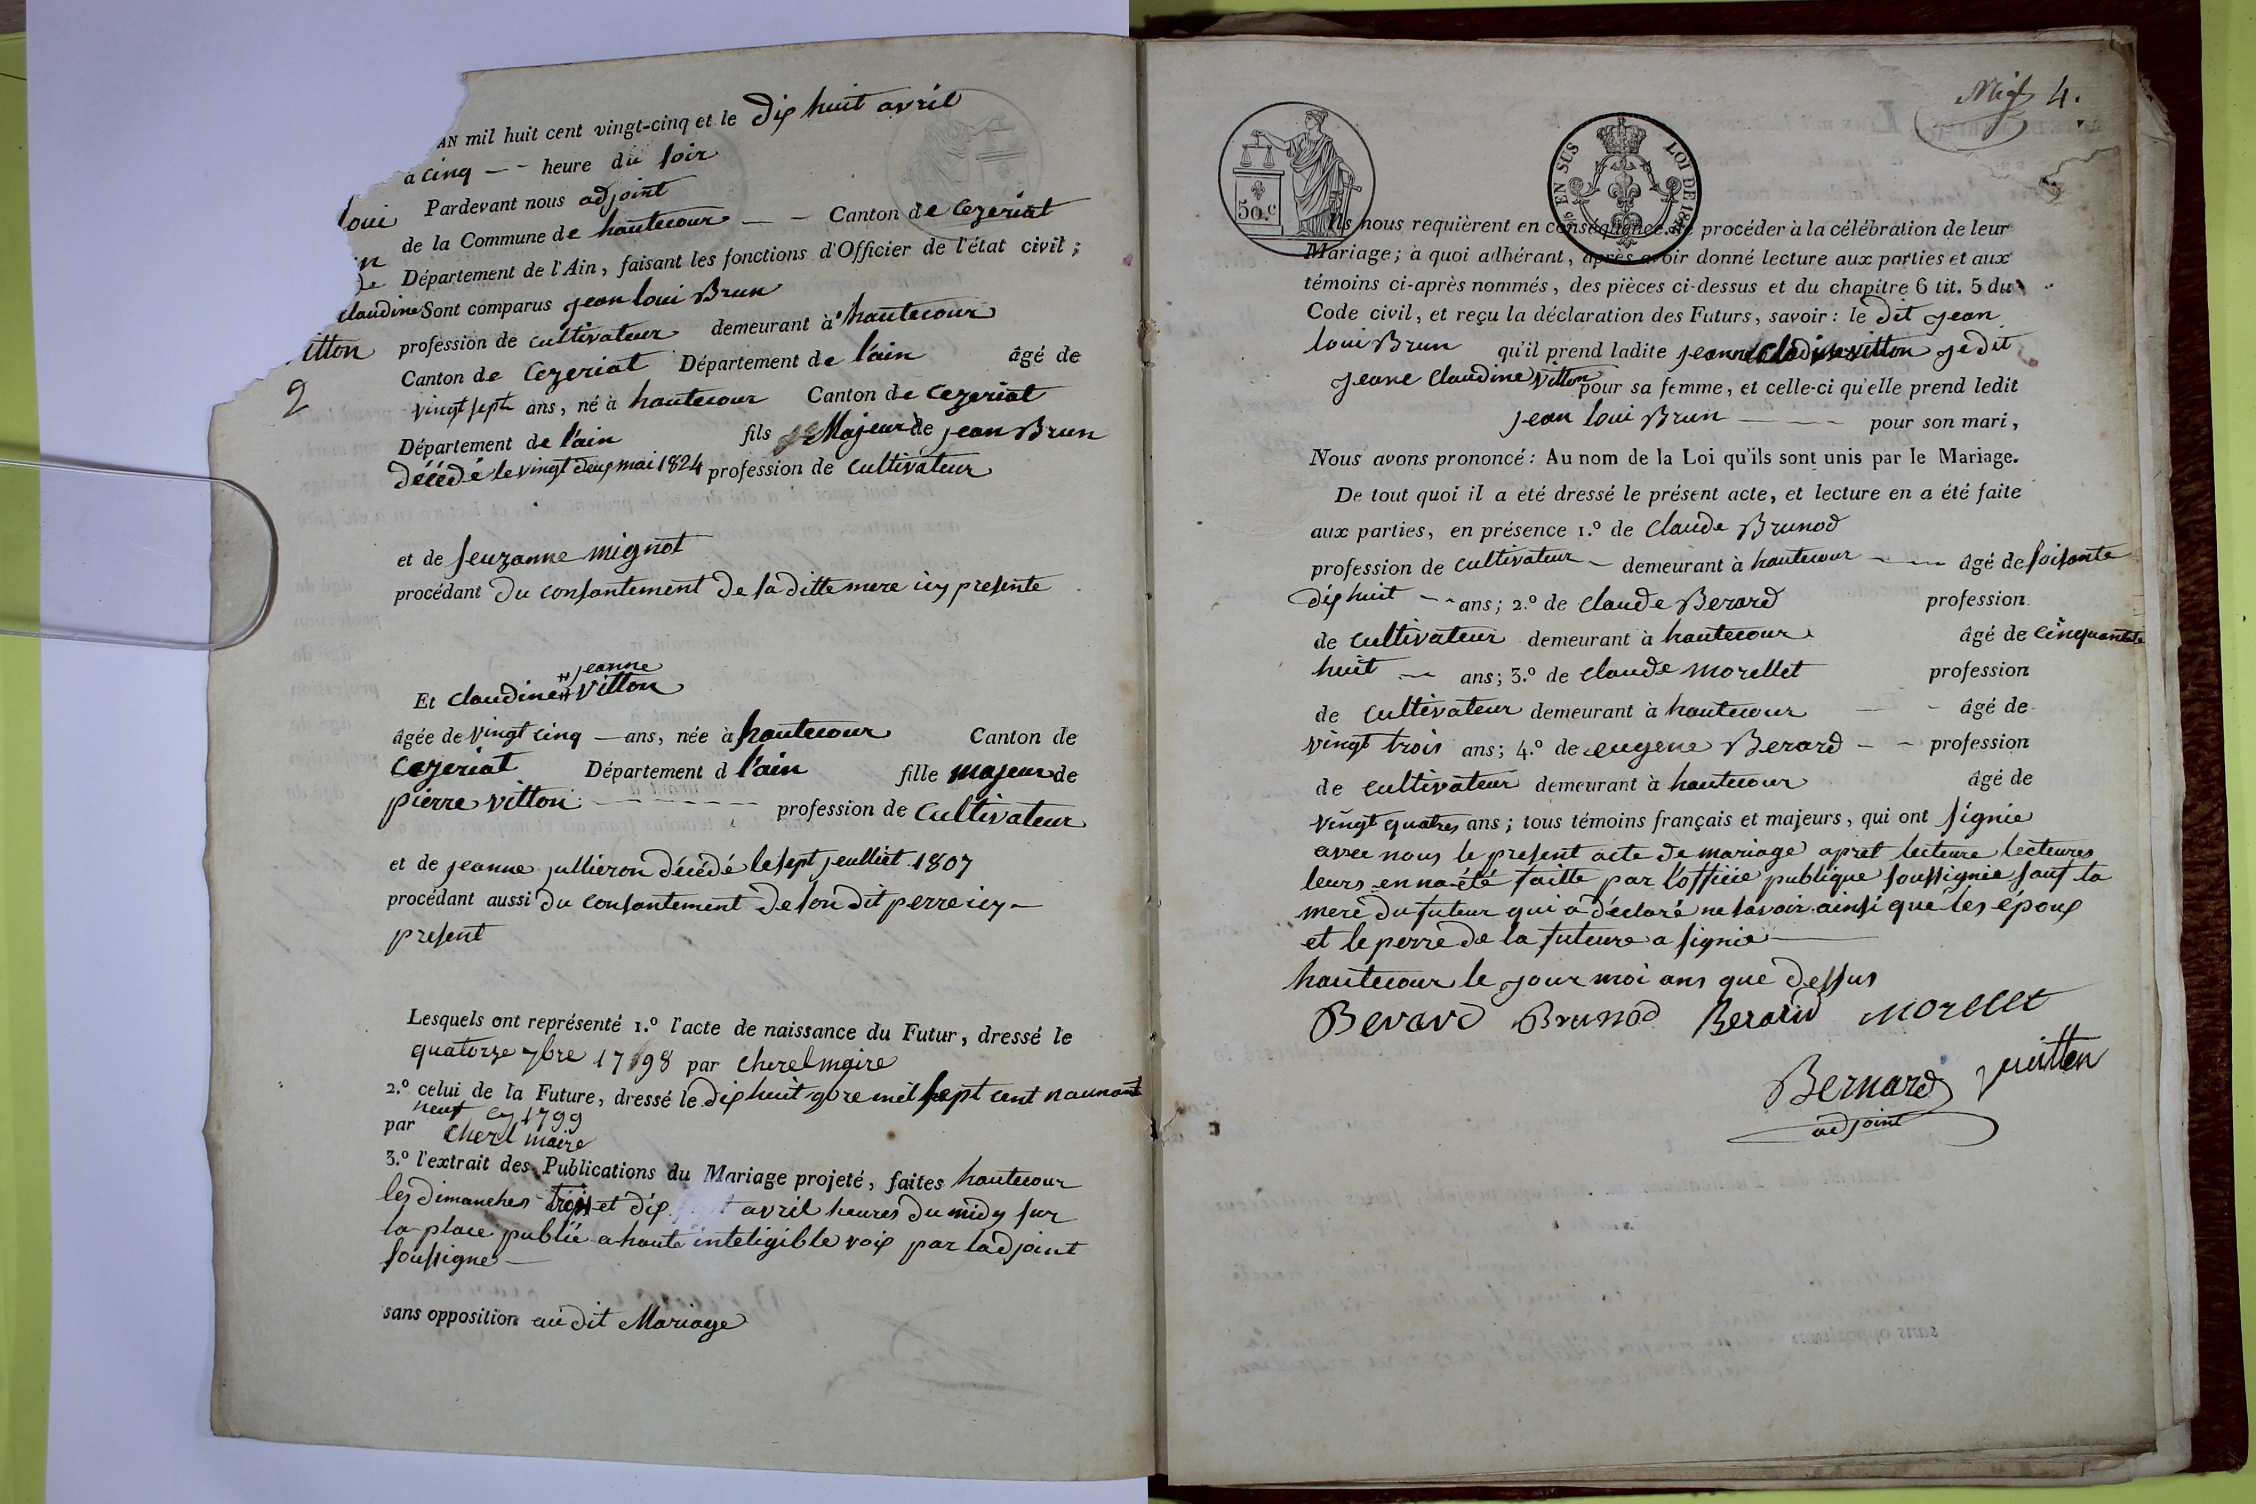 AN mil huit cent vingt-cinq et le dix huit avril
a cinq -- heure du soir
Pardevant nous adjoint
loui
de la Commune de hautecour -- Canton de Cezeriat
Département de l'Ain, faisant les fonctions d'Officier de l'état civil ;
claudine Sont comparus jean loui Brun
itton profession de cultivateur demeurant à hautecour
Canton de Cezeriat Département de l'ain âgé de
2
vingt sept ans, né à hautecour Canton de Cezeriat
Département de l'ain fils Majeur de jean Brun
décédé le vingt deux mai 1824 profession de cultivateur
et de seuzanne mignot
procédant du consantement de sa ditte mere icy presente
jeanne
Et claudine vitton
âgée de vingt cinq — ans, née à hautecour Canton de
Cezeriat Département d l'ain fille majeur de
pierre vitton ------ profession de Cultivateur
et de jeanne jullieron décédé le sept jeulliet 1807
procédant aussi du consantement de son dit perre icy —
present
Lesquels ont représenté 1.º l'acte de naissance du Futur, dressé le
quatorze 7bre 1798 par cherel maire
2.º celui de la Future, dressé le dix huit 9bre mil sept cent naunant
neuf cy 1799
par cherel maire
3.º l'extrait des Publications du Mariage projeté, faites hautecour
les dimanches trois et dix avril heures du midy sur
la place publié a haute inteligible voix par ladjoint
soussigne —
sans opposition au dit Mariage
4.
50.c
EN SUS LOI DE
Ils nous requièrent en conséquence de procéder à la célébration de leur
Mariage ; à quoi adhérant, après avoir donné lecture aux parties et aux
témoins ci-après nommés, des pièces ci-dessus et du chapitre 6 tit. 5 du
Code civil, et reçu la déclaration des Futurs, savoir : le dit jean
loui Brun qu'il prend ladite jeanne Cladine vitton je dit
jeane claudine vitton pour sa femme, et celle-ci qu'elle prend ledit
jean loui Brun ---- pour son mari,
Nous avons prononcé : Au nom de la Loi qu'ils sont unis par le Mariage.
De tout quoi il a été dressé le présent acte, et lecture en a été faite
aux parties, en présence 1.º de claude Brunod
profession de cultivateur - demeurant à hautecour -- âgé de soisante
dix huit -- ans ; 2.º de claude Berard profession
de cultivateur demeurant à hautecour âgé de cinquante
huit -- ans ; 3.º de claude morellet profession
de cultivateur demeurant à hautecour - - âgé de
vingt trois ans ; 4.º de eugene Berard - - profession
de cultivateur demeurant à hautecour âgé de
vingt quatres ans ; tous témoins français et majeurs, qui ont signie
avec nous le present acte de mariage apret lecteure lecteures
leurs en na été faitte par l'officie publique soussignie sauf la
mere du futeur qui a déclaré ne savoir ainsi que les époux
et le perre de la futeure a signie —
hautecour le jour moi ans que dessus
Berard Brunod Berard morellet
Bernard vuitton
adjoint